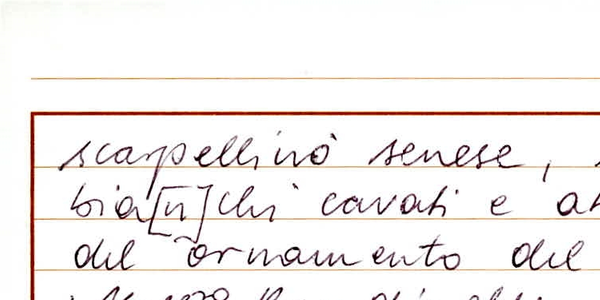 scarpellino senese,
bia[n]chi cavati e
del ornamento del